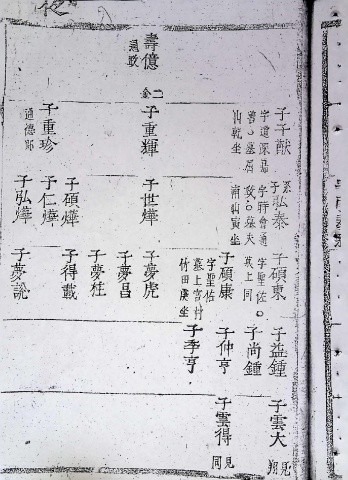 子子猷
字道深
善
墓眉
山乾坐
系子弘泰
字聖會通
政
南山寅坐
子碩東
字聖佐
墓上同
子益鍾
子雲大
見翔
子碩康
字聖佐
墓上宮村
竹田庚坐
子尚鍾
子仲亨
子雲得
見同
子季亨
壽億
通政
二
子重輝
子世燁
子夢虎
子夢昌
子夢柱
子碩燁
子得載
子重珍
通德郎
子仁燁
子弘燁
子夢訟